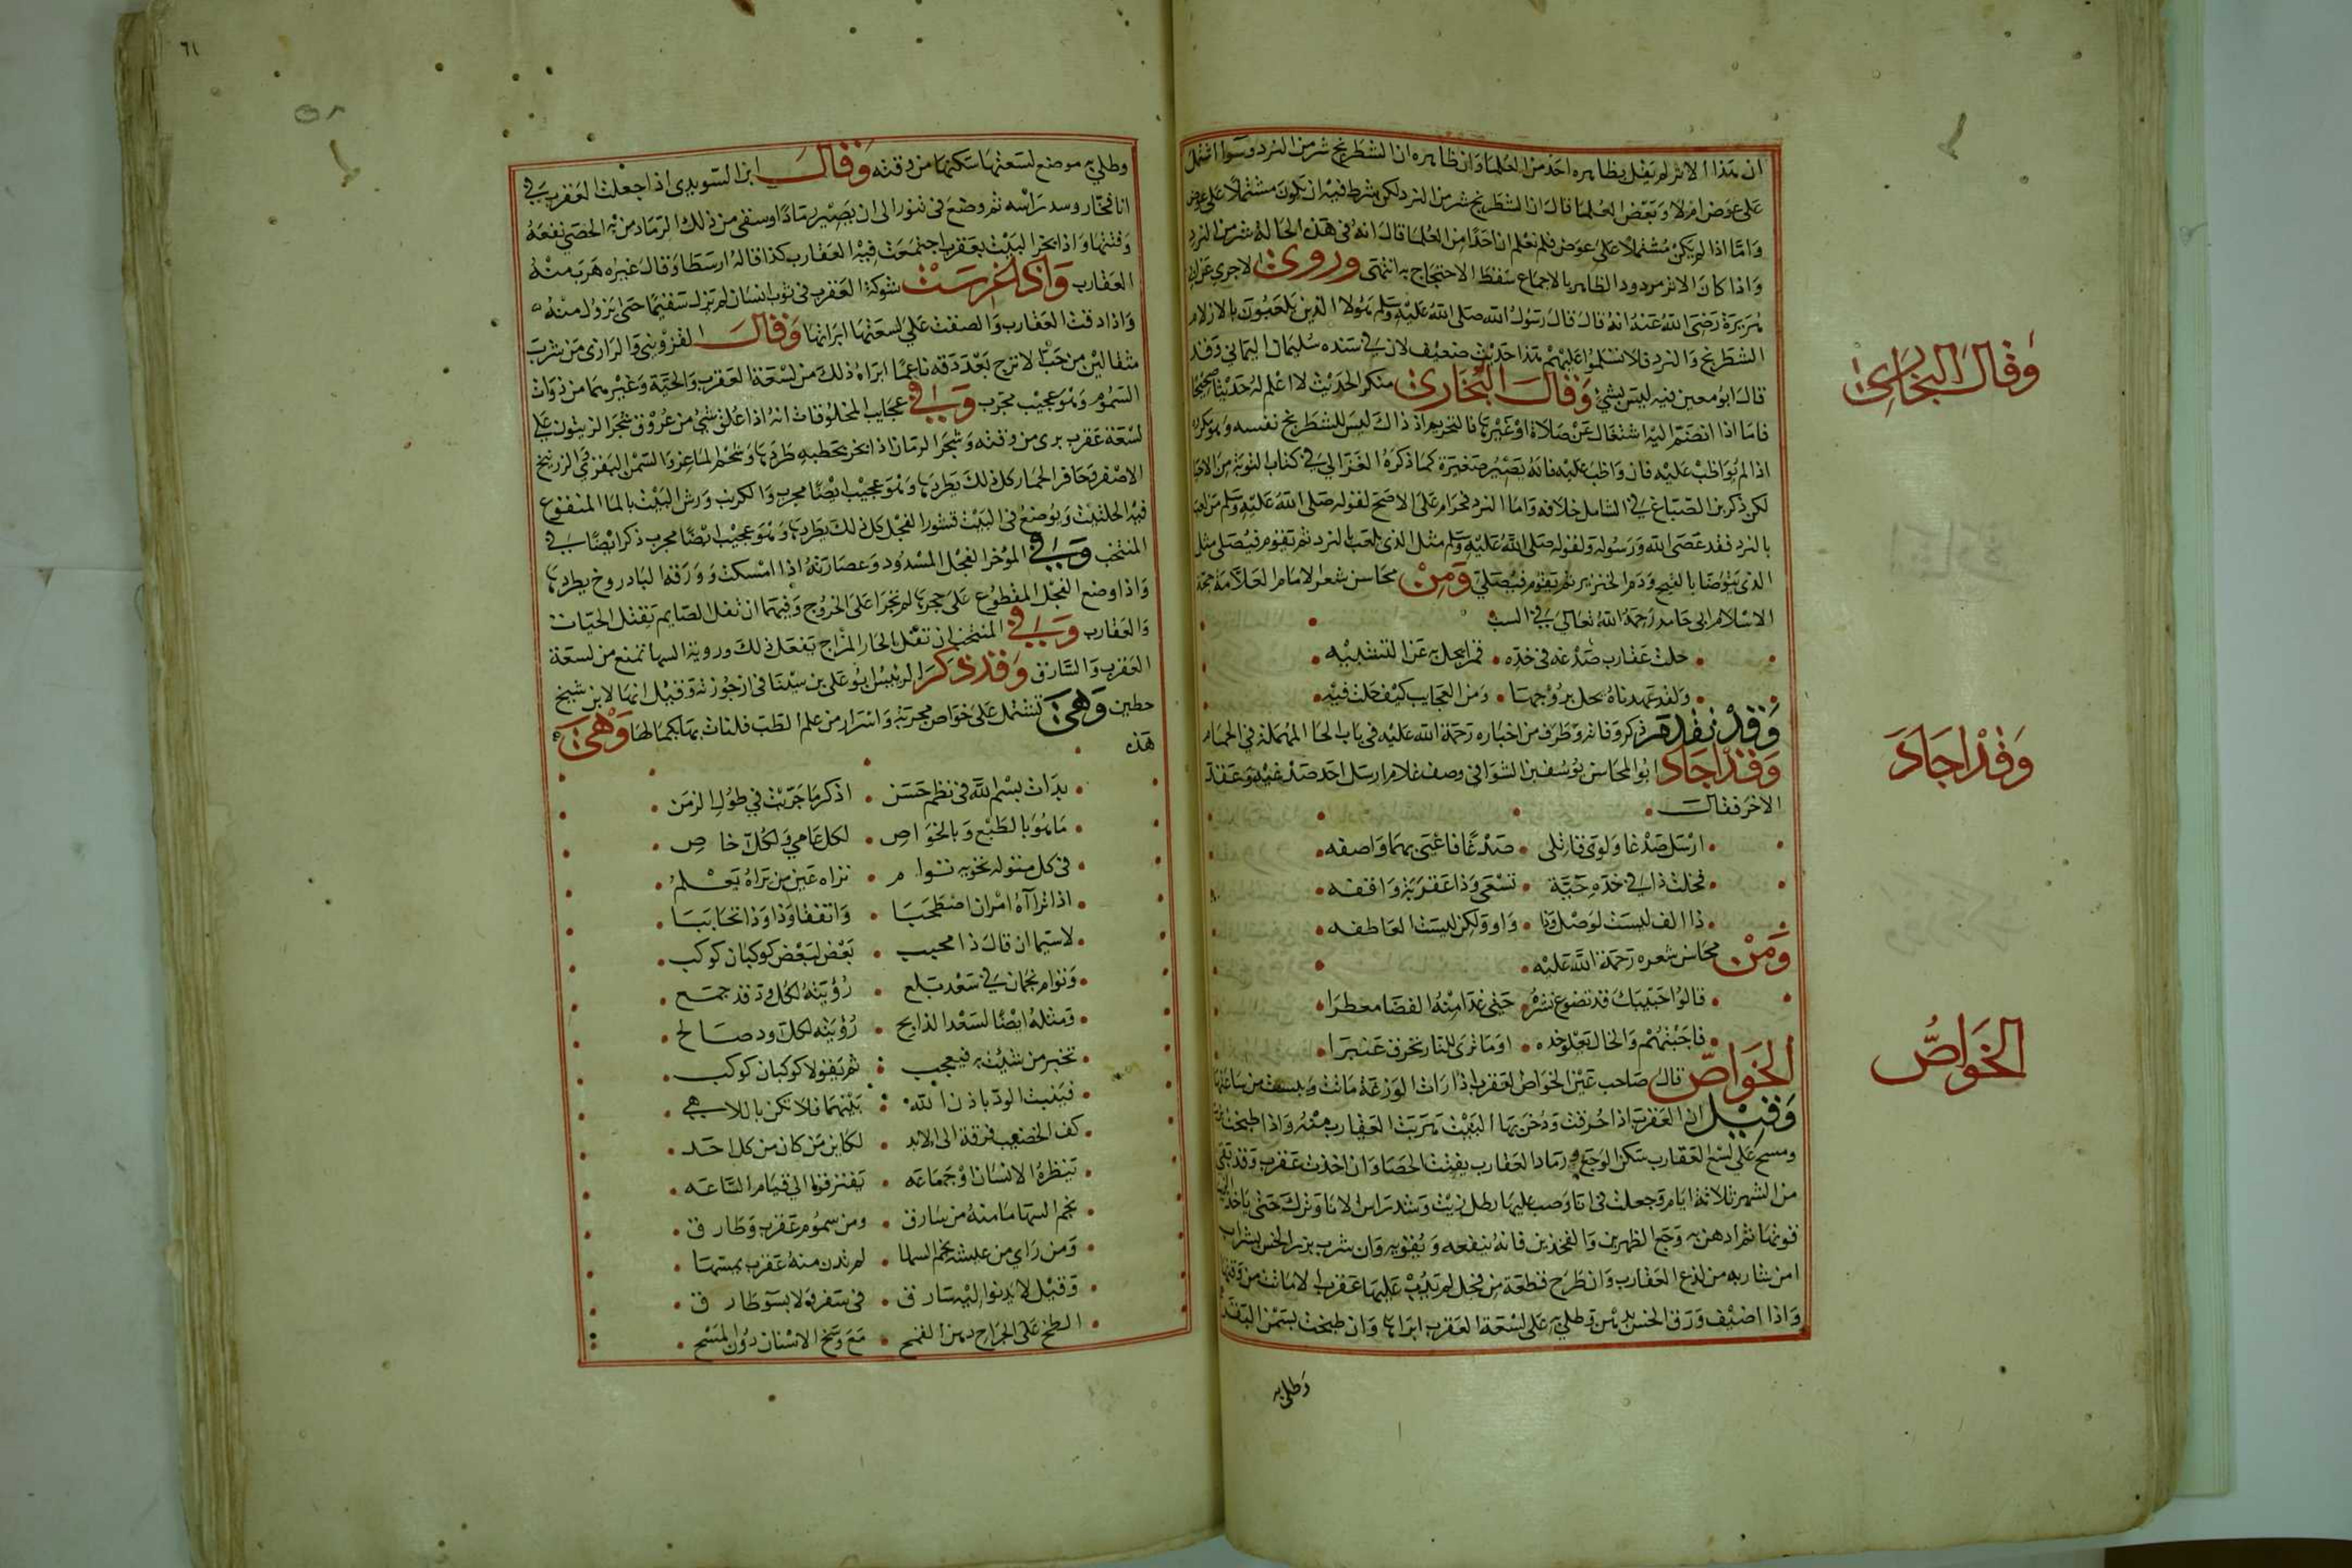 ان هذا الاثر لم يقل بظاهره احد من العلما وان ظاهره ان الشطرنج شر من النرد وسوا اشتمل
على عوض ام لا وبعض العلما قال ان الشطرنج شر من النرد لكن شرط فيه ان يكون مشتملا على عوض
واما اذا لم يكن مشتملا على عوض فلم نعلم ان احدا من العلما قال انه في هذه الحالة شر من النرد
واذا كان الاثر مردود الظاهر بالاجماع سقط الاحتجاج به انتهى وروى الاجري عن ابي
هريرة رضي الله عنه انه قال قال رسول الله صلى الله عليه وسلم هولا الذين يلعبون بالازلام
الشطرنج والنرد فلا تسلموا عليهم هذا حديث ضعيف لان في سنده سليمان اليماني وقد
قال ابو معين فيه ليس بشي وقال البخاري منكر الحديث لا اعلم له حديثا صحيحا
فاما اذا انضم اليه اشتغال عن صلاة او غيرها فالتحريم اذ ذاك ليس للشطرنج نفسه وهو يكره
اذا لم يواظب عليه فان واظب عليه فانه يصير صغيرة كما ذكره الغزالي في كتاب التوبة من الاحيا
لكن ذكر بن الصباغ في الشامل خلافه واما النرد فحرام على الاصح لقوله صلى الله عليه وسلم من لعب
بالنرد فقد عصى الله ورسوله ولقوله صلى الله عليه وسلم مثل الذي يلعب بالنرد ثم يقوم فيصلي مثل
الذي يتوضا بالقيح ودم الخنزير ثم يقوم فيصلي ومن محاسن شعر الامام العلامة حجة
الاسلام ابي حامد رحمه الله تعالى في السب
حلت عقارب صدغه في خده • قمرا يجل به عن التشبيه
ولقد عهدناه يحل ببرجها • ومن العجايب كيف حلت فيه
وقد تقدم ذكر وفاته وطرف من اخباره رحمة الله عليه في باب الحا المهملة في الحمام
وقد اجاد ابو المحاسن يوسف بن الشوا في وصف غلام ارسل احد صدغيه وعقد
الاخر فقال
ارسل صدغا ولوى قاتلي • صدغا فاعيى بهما واصفه
فخلت ذا في خده حية • تسعى وذا عقربة واقفه
ذا الف ليست لوصل وذا • واو ولكن ليست العاطفه
ومن محاسن شعره رحمة الله عليه
قالوا حبيبك قد تضوع نشره • حتى غدا منه الفضا معطرا
فاجبتهم والخال يعلو خده • او ما ترى النار تحرق عنبرا
الخواص قال صاحب عين الخواص العقرب اذا رات الوزغة ماتت ويبست من ساعتها
وقيل ان العقرب اذا احرقت ودخن بها البيت هربت العقارب منه واذا طبخت
ومسح على لسع العقارب سكن الوجع ورماد العقارب يفتت الحصا وان اخذت عقرب وقد بقي
من الشهر ثلاثة ايام وجعلت في انا وصب عليها رطل زيت وشد راس الانا وترك حتى ياخذ الزيت
قوتها ثم ادهن به وجع الظهر والفخذين فانه ينفعه ويقويه وان شرب بزر الخس بشراب
امن شاربه من لذع العقارب وان طرح قطعة من فجل لم يدب عليها عقرب الا ماتت من وقتها
واذا اضيف ورق الخس بدهن وطلي به على لسعة العقرب ابراها وان طبخت بسمن البقر
وطلي به
وقال البخاري
وقد اجاد
الخواص
٦١
وطلي به موضع لسعتها سكنها من وقته وقال ابن السويدي اذا جعلت العقرب في
انا فخار وسد راسه ثم وضع في تنور الى ان يصير رمادا وسقي من ذلك الرماد من به الحصى نفعه
وفتتها واذا بخر البيت بعقرب اجتمعت فيه العقارب كذا قاله ارسطا وقال غيره هرب منه
العقارب واذا غرست شوكة العقرب في ثوب انسان لم يزل سقيما حتى يزول منه
واذا دقت العقارب والصقت على لسعتها ابراتها وقال القزويني والرازي من شرب
مثقالين من حب الاترج بعد دقه ناعما ابراه ذلك من لسعة العقرب والحية وغيرهما من ذوات
السموم وهو عجيب مجرب وفي عجايب المخلوقات انه اذا علق شي من عروق شجر الزيتون على
لسعة عقرب بري من وقته وشجر الرمان اذا بخر بحطبه طردها وشحم الماعز والسمن البقري والزرنيخ
الاصفر وحافر الحمار كل ذلك يطردها وهو عجيب ايضا مجرب والكرنب ورش البيت بالما المنقوع
فيه الحلتيت ويوضع في البيت قشور الفجل كل ذلك يطردها وهو عجيب ايضا مجرب ذكر ايضا في
المنتخب وفي المؤخر الفجل المسدود وعصارته اذا امسكت وورقه البادروخ يطردها
واذا وضع الفجل المقطوع على جحرها لم تجرا على الخروج وفيهما ان تفل الصايم يقتل الحيات
والعقارب وفي المنتخب ان تفل الحار المزاج يفعل ذلك وروية السها تمنع من لسعة
العقرب والسارق وقد ذكر الرئيس ابو علي بن سينا في ارجوزته وقيل انها لابن شيخ
حطين وهي تشتمل على خواص مجربة واسرار من علم الطب فلنات بها بكمالها وهي
هذه
بدات بسم الله في نظم حسن • اذكر ما جربت في طول الزمن
ما هو بالطبع وبالخواص • لكل عامي ولكل خاص
في كل منتوله تحويه توام • نراه عين من تراه يعلم
اذا تراآه امران اصطحبا • واتفقا وذا وذا تحاببا
لا سيما ان قال ذا محيب • بعض لبعض كوكبان كوكب
وتوام نجمان في سعد بلع • رؤيته لكل ود قد جمع
ومثله ايضا لسعد الذابح • رؤيته لكل ود صالح
تخبر من شئت به فيعجب • ثم يقولا كوكبان كوكب
فيثبت الود باذن الله • بينهما فلا تكن باللاهي
كف الخضيب فرقة الى الابد • لكاين من كان من كل احد
تنظره الانسان او جماعه • يفترقوا الى قيام الساعه
نجم السها مامنه من سارق • ومن سموم عقرب وطارق
ومن راي من عيشه نجم السها • لم تدن منه عقرب يمسها
وقيل لا يدنوا اليه سارق • في سفر ولا بسو طارق
الطخ على الجراح دهن القمح • مع وسخ الاسنان دون المسح